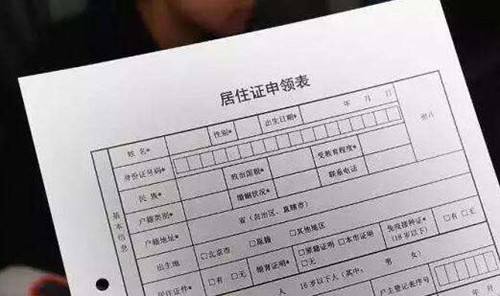 居住证申领表
姓名* 性别* 出生日期* 年 月 日
身份证号码* 照片
民族* 政治面貌* 受教育程度*
户籍类别* 婚姻状况* 联系电话
户籍地址* 省（自治区、直辖市）
出生地 □北京市 □原籍 □其他地区
居住证件* □有 □无 婚育证明* □原籍证明 □本市证明 免疫接种证* (18岁以下) □有 □无
人 16岁以下人（其中， 男 女）
户主登记表序号
基本信息